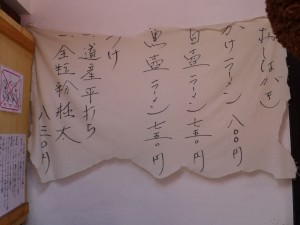 おしながき
かけラーメン 八〇〇円
白壺ラーメン 七五〇円
黒壺ラーメン 七五〇円
つけ
一 道産平打ち
一 全粒粉極太
八三〇円